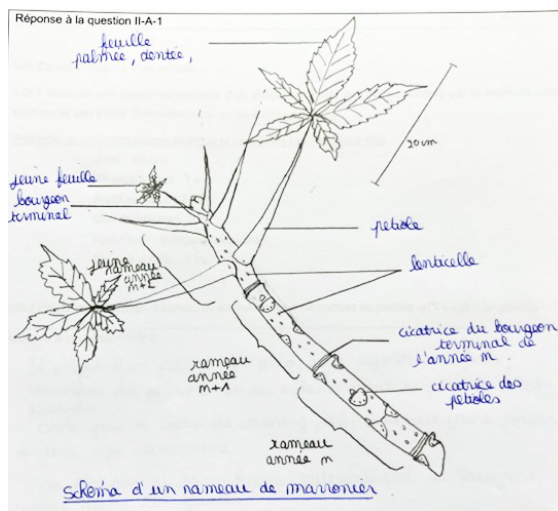 Réponse à la question II-A-1
feuille
palmée, dentée,
20 cm
jeune feuille
bourgeon
terminal
pétiole
jeune
rameau
année
n+2
lenticelle
cicatrice du bourgeon
terminal de
l'année n.
rameau
année
n+1
cicatrice des
pétioles
rameau
année n
Schéma d'un rameau de marronier